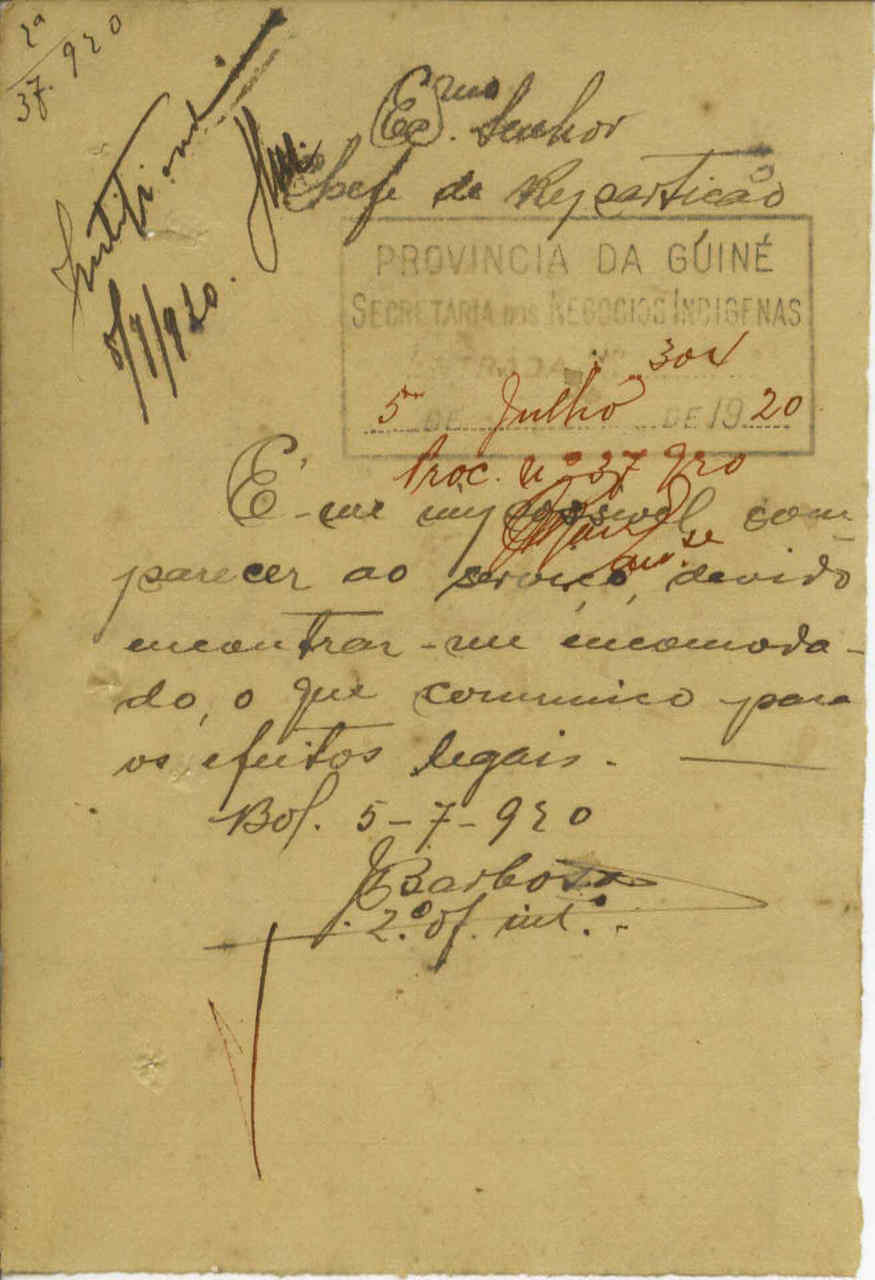 2ª
37.920
5/7/920.
Exmo. Senhor
Chefe da Repartição
PROVINCIA DA GUINÉ
SECRETARIA DOS NEGOCIOS INDIGENAS
ENTRADA Nº 304
5 DE Julho DE 1920
Proc. nº 37 920
É-me impossivel com
parecer ao serviço, devido
encontrar-me incomoda-
do, o que comunico para
os efeitos legais.
Bol. 5-7-920
JBarbosa
2.º of. int.º